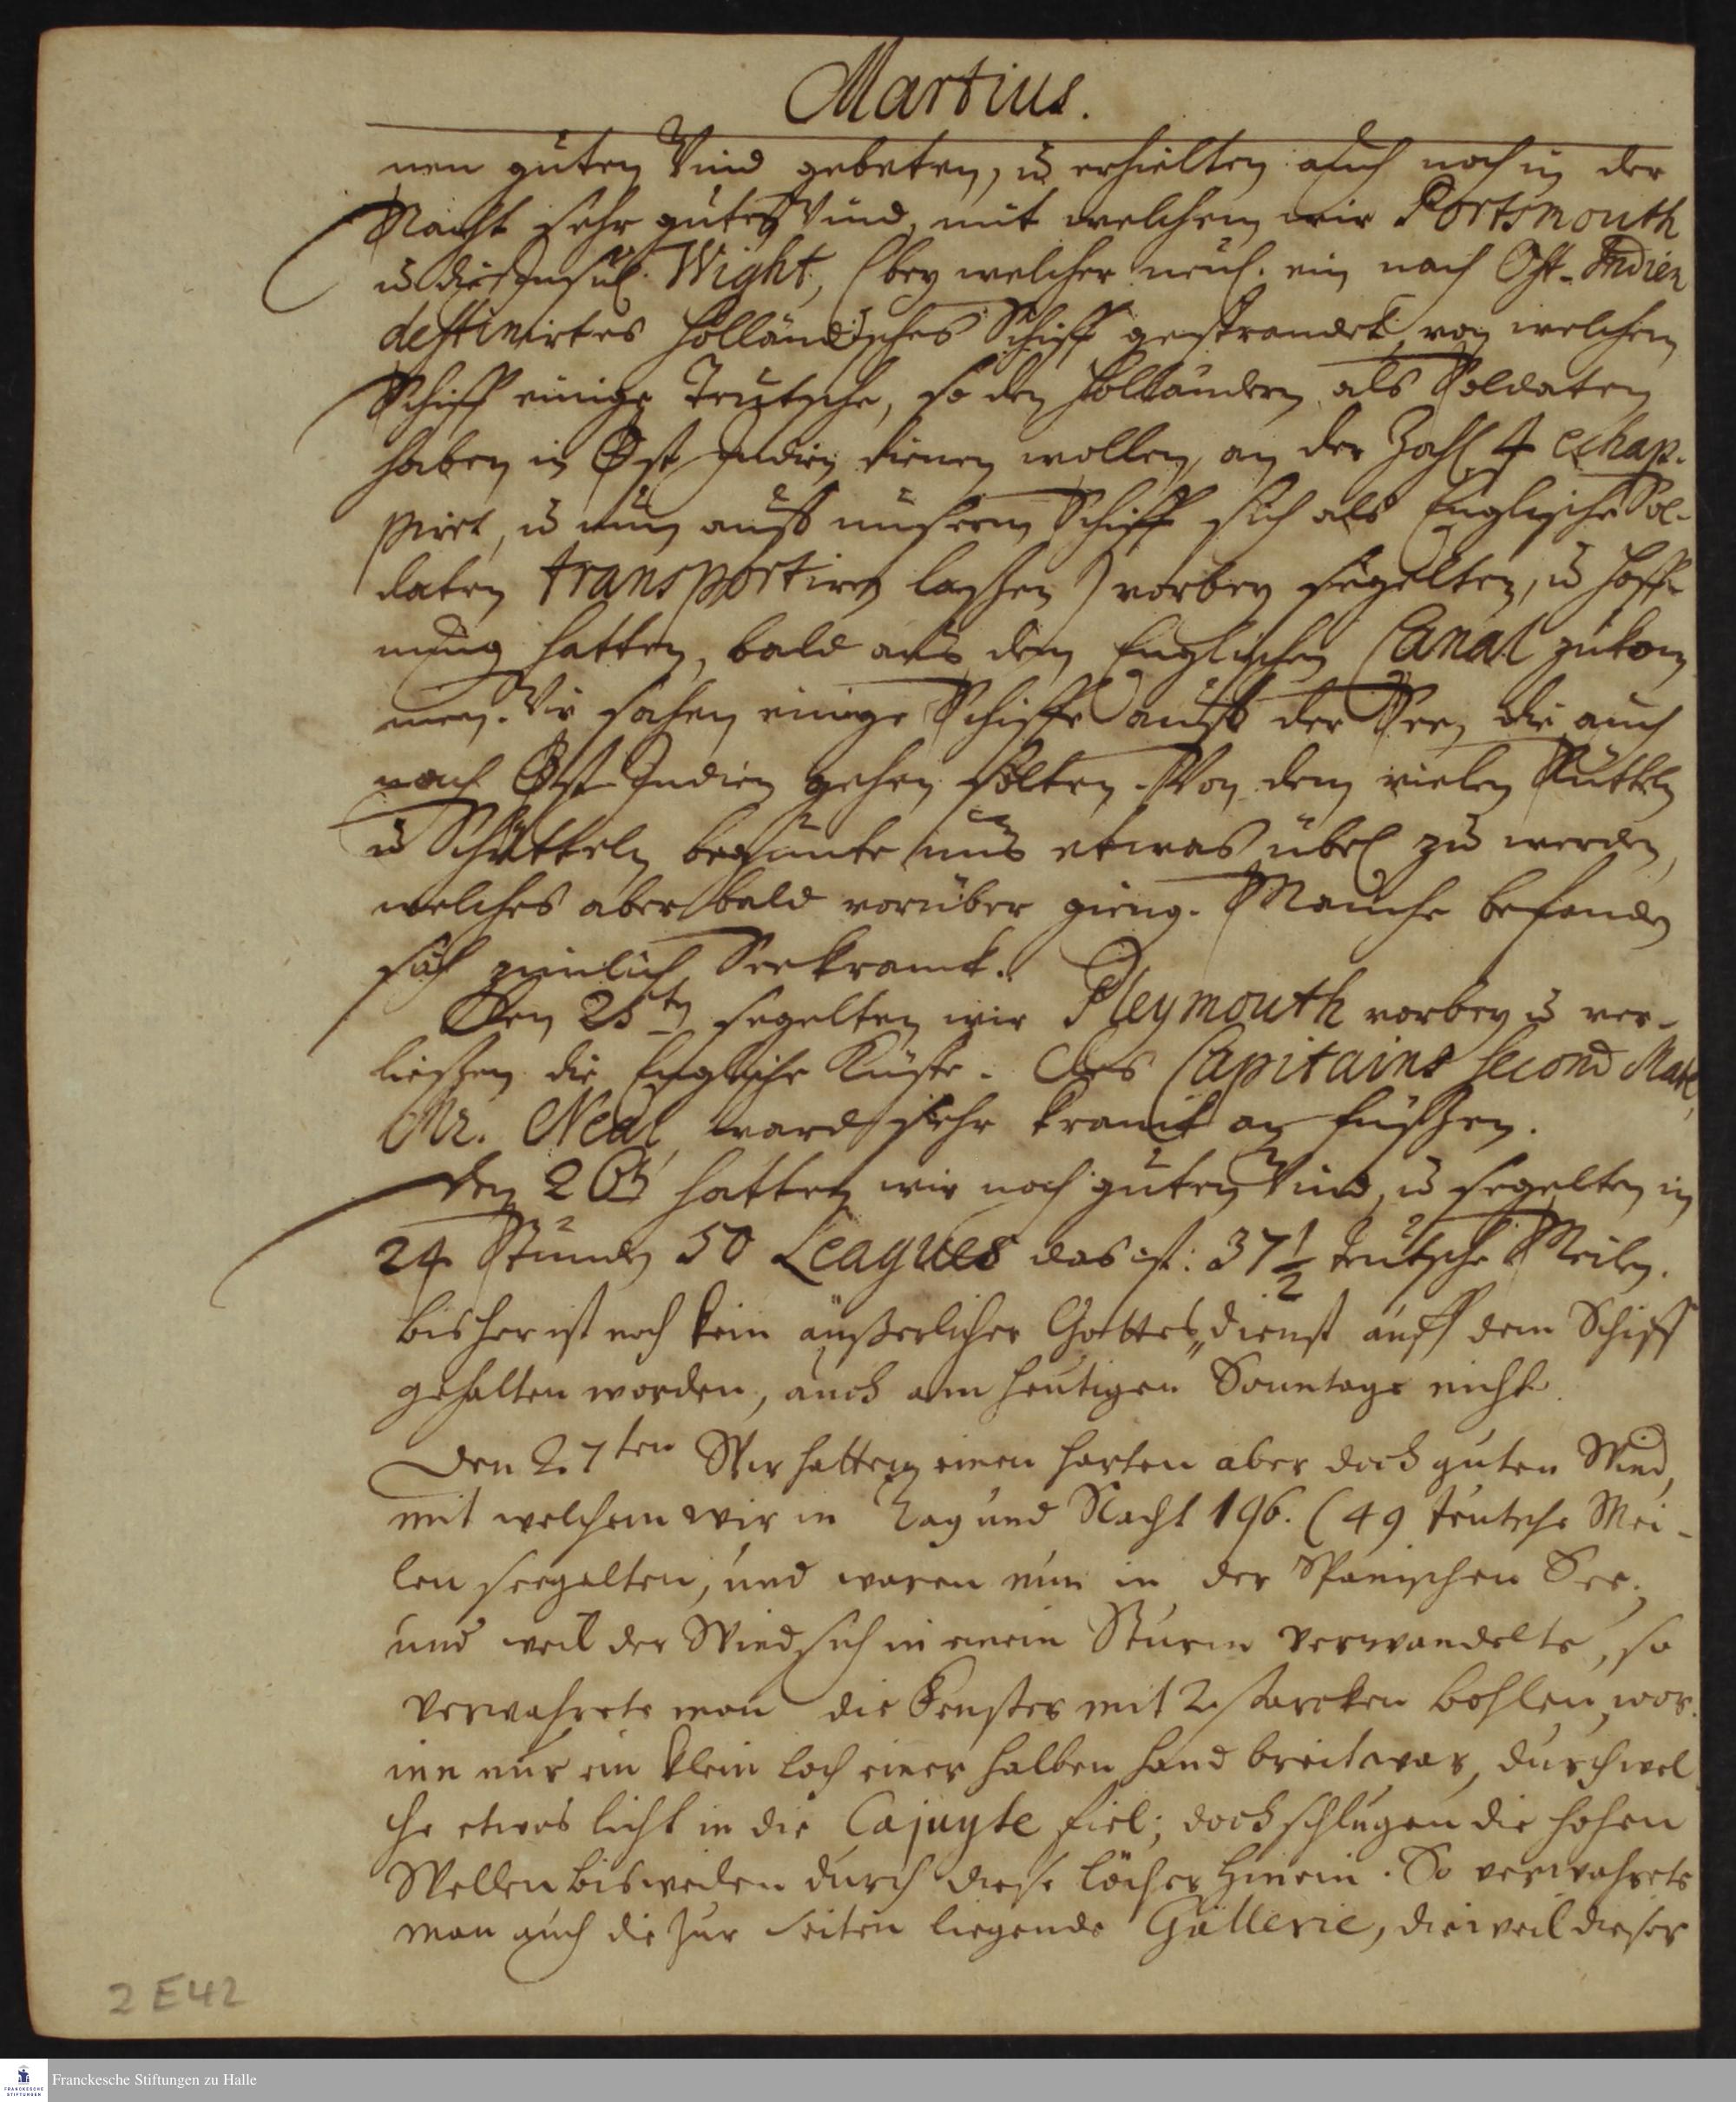 Martius.
nen guten Wind gebeten, u. erhielten auch noch in der
Nacht sehr guten Wind, mit welchem wir Portsmouth
u. die Insul Wight, (bey welcher neul. ein nach Ost-Indien
destinirtes Holländisches Schiff gestrandet, von welchem
Schiff einige Teutsche, so den Holländern als Soldaten
haben in Ost Indien dienen wollen, an der Zahl 4 echap-
pirt, u. nun auff unserm Schiff sich als Englische Sol-
daten transportiren lassen) vorbey segelten, u. Hoff-
nung hatten, bald aus dem Englischen Canal zu kom
men. Wir sahen einige Schiffe auff der See, die auch
nach Ost-Indien gehen solten. Von dem vielen Rütteln
u. Schütteln begunte uns etwas übel zu werden,
welches aber bald vorüber gieng. Manche befanden
sich zimlich Seekranck.
Den 25ten segelten wir Pleymouth vorbey u. ver-
liessen die Englische Küste. Des Capitains second Mate,
Mr. Neal, ward sehr kranck an Füssen.
Den 26t hatten wir noch guten Wind, u. segelten in
24 Stunden 50 Leagues das ist: 37 1/2 teutsche Meilen.
bisher ist noch kein äußerlicher Gottes„dienst auff dem Schiff
gehalten worden, auch am heutigen Sonntage nicht.
Den 27ten Wir hatten einen harten aber doch guten Wind,
mit welchem wir in Tag und Nacht 196. (49 teutsche Mei-
len seegelten, und waren nun in der Spanischen See;
und weil der Wind sich in einein Sturm verwandelte, so
verwahrete man die Fenster mit 2 starcken bohlen, wor-
inn nur ein klein Loch einer halben Hand breit war, durch wel
che etwas licht in die Cajuyte fiel; doch schlugen die hohen
Wellen bisweilen durch diese löcher hinein. So verwahrete
man auch die zur Seiten liegende Gallerie, dieweil dieser
2 E42
FRANCKESCHE STIFTUNGEN
Franckesche Stiftungen zu Halle